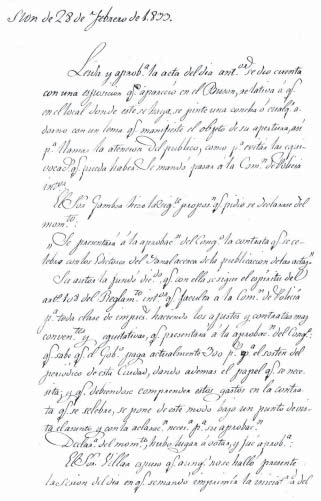 Sion de 28 de Febrero de 1.833.
Leida y aprob.ª la acta del dia ant.or se dio cuenta
con una exposicion q.e aparecio en el Buzon, relativa á q.e
en el local donde este se haya, se pinte una concha ó cualq.r
adorno con un lema q.e manifieste el objeto de su apertura, asi
p.ª llamar la atencion del publico, como p.r evitar las equi-
vocac.s q.e pueda haber. Se mandó pasar á la Com.n de Policia
int.or
El Sor Gamboa hizo la sig.te propos.n q.e pidio se declarase del
mom.to:
"Se presentará á la aprobac.n del Cong.o la contrata q.e se ce-
lebro con los Editores del acerca de la publicacion de las actas".
Su autor la fundó dic.do q.e con ella, se sigue el espiritu del
art.o 153 del Reglam.to int.or q.e faculta á la Com.n de Policia
p.ª toda clase de impres.s haciendo los ajustes y contratas mas
conven.tes y equitativas, q.e presentará á la aprobac.n del Cong.o
q.e sabe q.e el Gob.no paga actualmente 300 p.s p.ª el sosten del
periodico de esta Ciudad, dando ademas el papel q.e se nece-
sita; y q.e debiendose comprender estos gastos en la contra-
ta q.e se celebre, se pone de este modo bajo un punto de vis-
ta el asunto y con la aclarac.n neces.ª p.ª su aprobac.n
Declar.ª del mom.to hubo lugar á votar, y fue aprob.ª
El Sor Villar expuso q.e aunq.e no se halló presente
la sesion del dia en q.e se mandó imprimir la iniciat.ª del